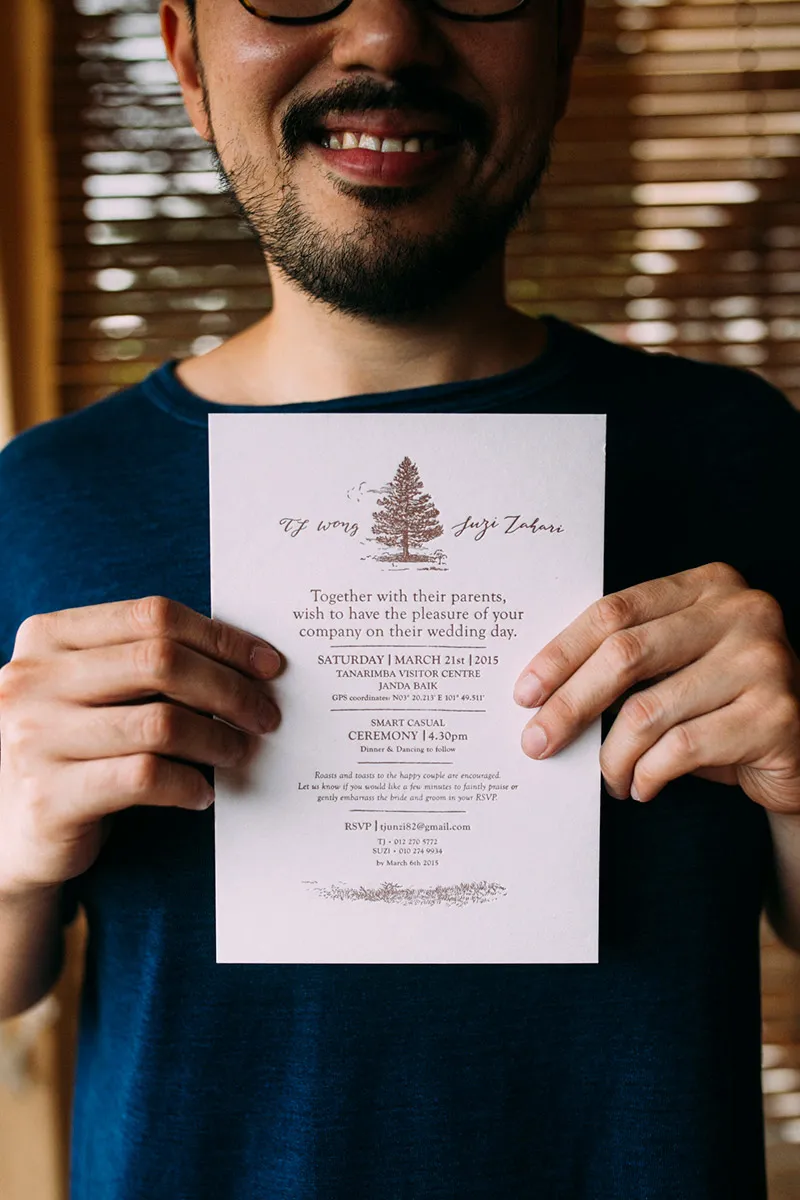 TJ Wong Suzi Zahari
Together with their parents,
wish to have the pleasure of your
company on their wedding day.
SATURDAY | MARCH 21st | 2015
TANARIMBA VISITOR CENTRE
JANDA BAIK
GPS coordinates: N03° 20.213' E 101° 49.511'
SMART CASUAL
CEREMONY | 4.30pm
Dinner & Dancing to follow
Roasts and toasts to the happy couple are encouraged.
Let us know if you would like a few minutes to faintly praise or
gently embarrass the bride and groom in your RSVP.
RSVP | tjunzi82@gmail.com
TJ • 012 270 5772
SUZI • 010 274 9934
by March 6th 2015